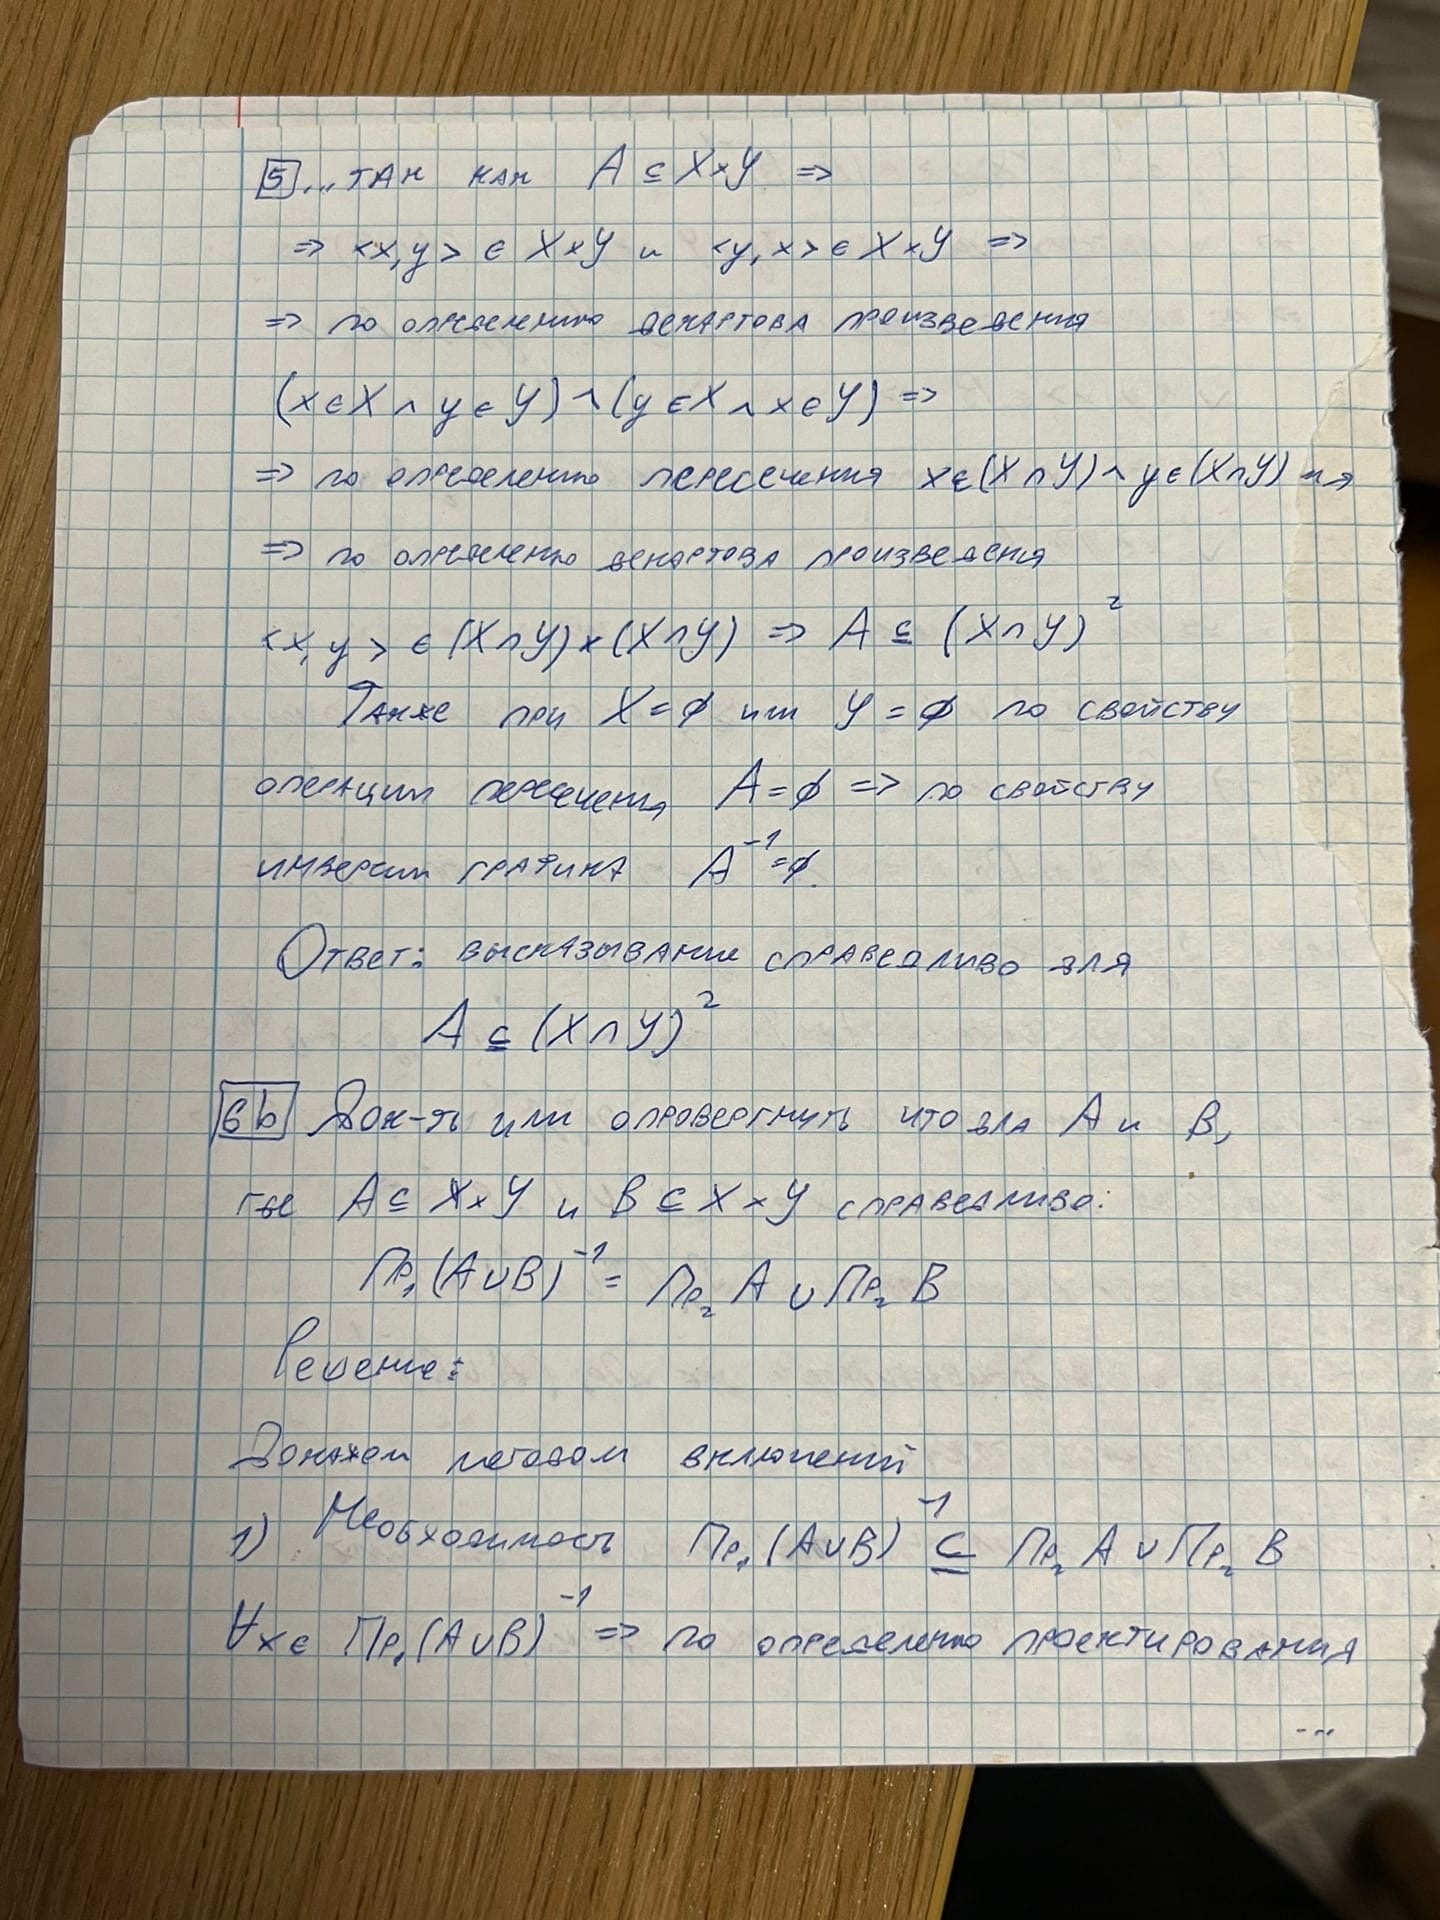 5 ... так как A ⊆ X×Y ⇒
⇒ <x,y> ∈ X×Y и <y,x> ∈ X×Y ⇒
⇒ по определению декартова произведения
(x∈X ∧ y∈Y) ∧ (y∈X ∧ x∈Y) ⇒
⇒ по определению пересечения x∈(X∩Y) ∧ y∈(X∩Y) ⇒
⇒ по определению декартова произведения
<x,y> ∈ (X∩Y)×(X∩Y) ⇒ A ⊆ (X∩Y)²
Также при X=∅ или Y=∅ по свойству
операции пересечения A=∅ ⇒ по свойству
инверсии графика A⁻¹=∅.
Ответ: высказывание справедливо для
A ⊆ (X∩Y)²
6b Док-ть или опровергнуть что для A и B,
где A ⊆ X×Y и B ⊆ X×Y справедливо:
Пр₁(A∪B)⁻¹ = Пр₂ A ∪ Пр₂ B
Решение:
Докажем методом включений
1) Необходимость Пр₁(A∪B)⁻¹ ⊆ Пр₂ A ∪ Пр₂ B
∀x∈ Пр₁(A∪B)⁻¹ ⇒ по определению проектирования
...